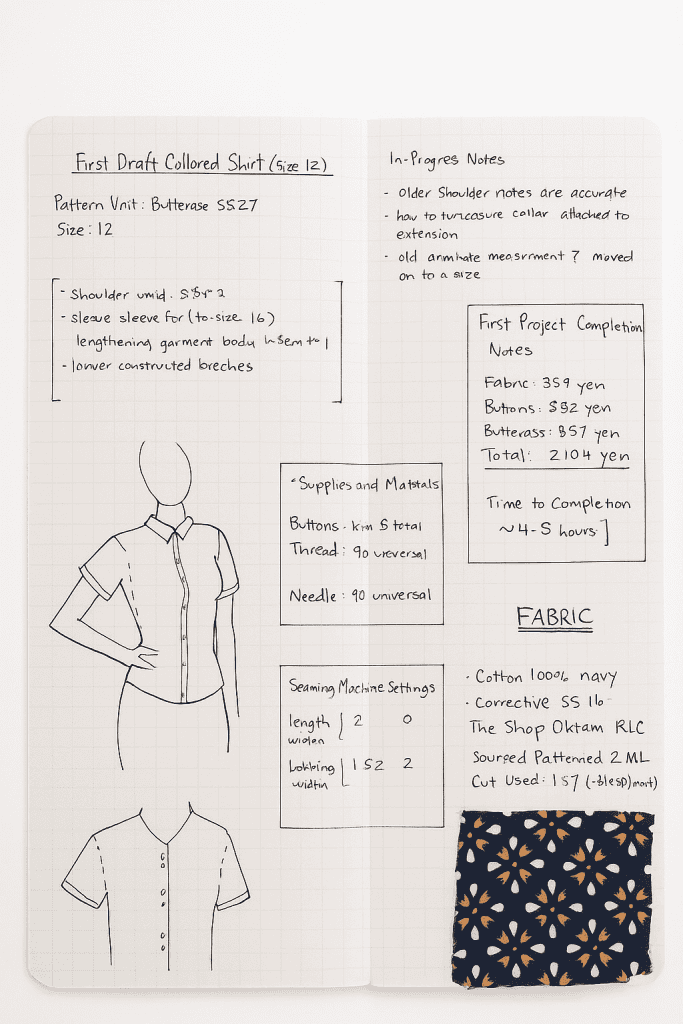 First Draft Collored Shirt (size 12)
Pattern Unit: Butterase SS27
Size: 12
- Shoulder umid.
- sleave sleeve for (to-size 16)
lengthening garment body
- lonver constructed breches
In-Progres Notes
- Older Shoulder notes are accurate
- how to collar attached to
extension
- old measurment ? moved
on to a size
First Project Completion
Notes
Fabric: 359 yen
Buttons: $92 yen
Butterass: $57 yen
Total: 2104 yen
Time to Completion
~ 4-5 hours ]
"Supplies and Matstals
Buttons - 5 total
Thread: 90
Needle: 90 universal
Seaming Machine Settings
length 2 0
widen
152 2
width
FABRIC
· Cotton 100% navy
· Corrective SS 16
The Shop Oktam RLC
Sourged Patterned 2 ML
Cut Used: 157